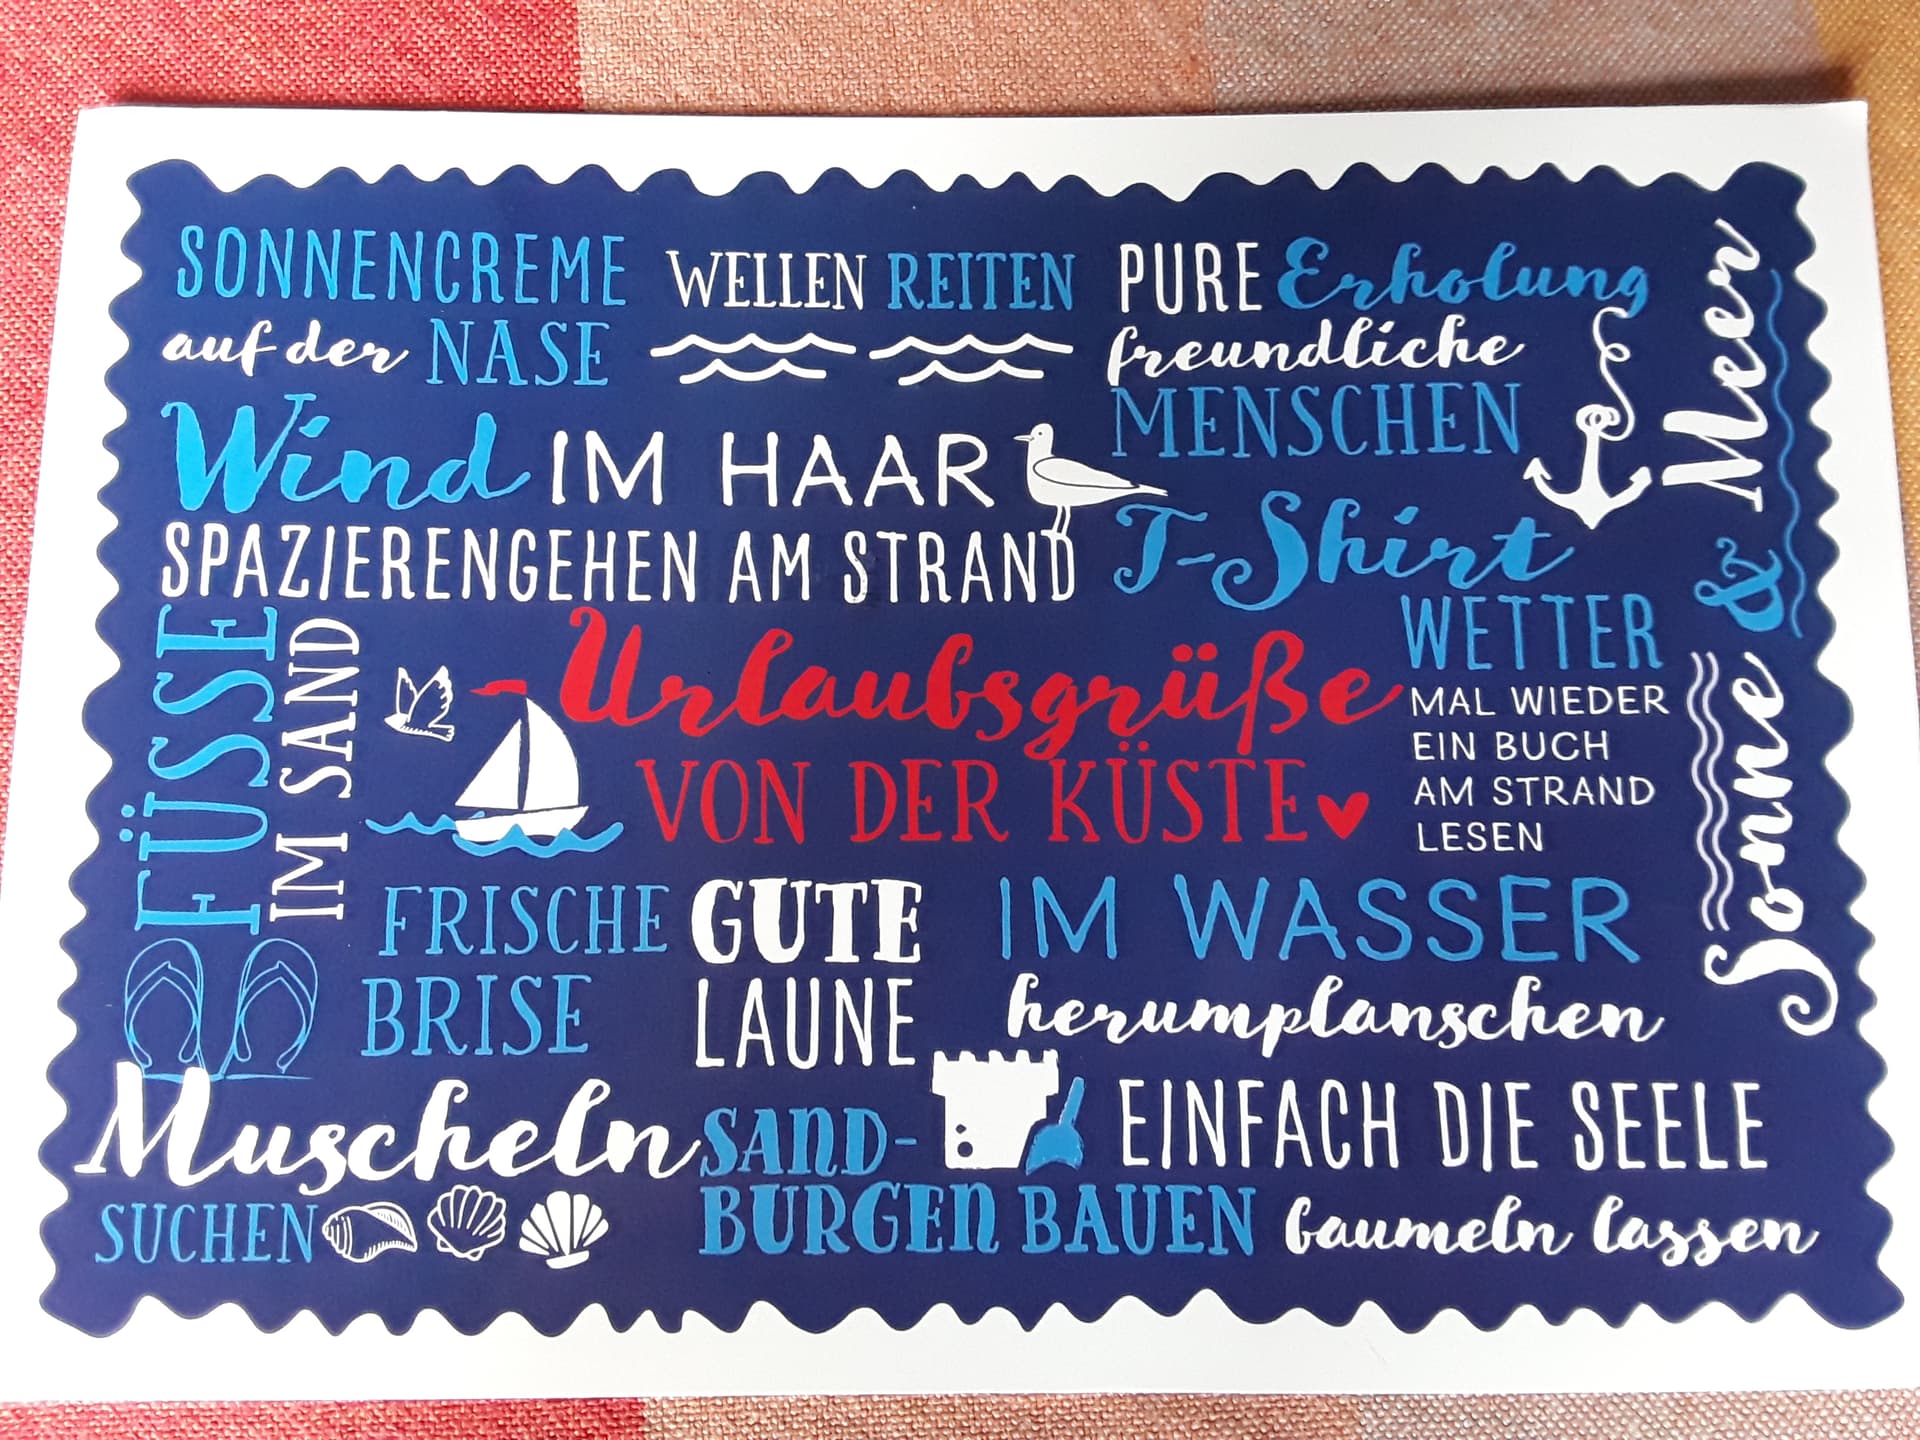 SONNENCREME
auf der NASE
WELLEN REITEN
PURE Erholung
freundliche
MENSCHEN
Sonne & Meer
Wind IM HAAR
SPAZIERENGEHEN AM STRAND
T-Shirt
WETTER
FÜSSE
IM SAND
Urlaubsgrüße
VON DER KÜSTE
MAL WIEDER
EIN BUCH
AM STRAND
LESEN
FRISCHE
BRISE
GUTE
LAUNE
IM WASSER
herumplanschen
Muscheln
SUCHEN
SAND-
BURGEN BAUEN
EINFACH DIE SEELE
baumeln lassen